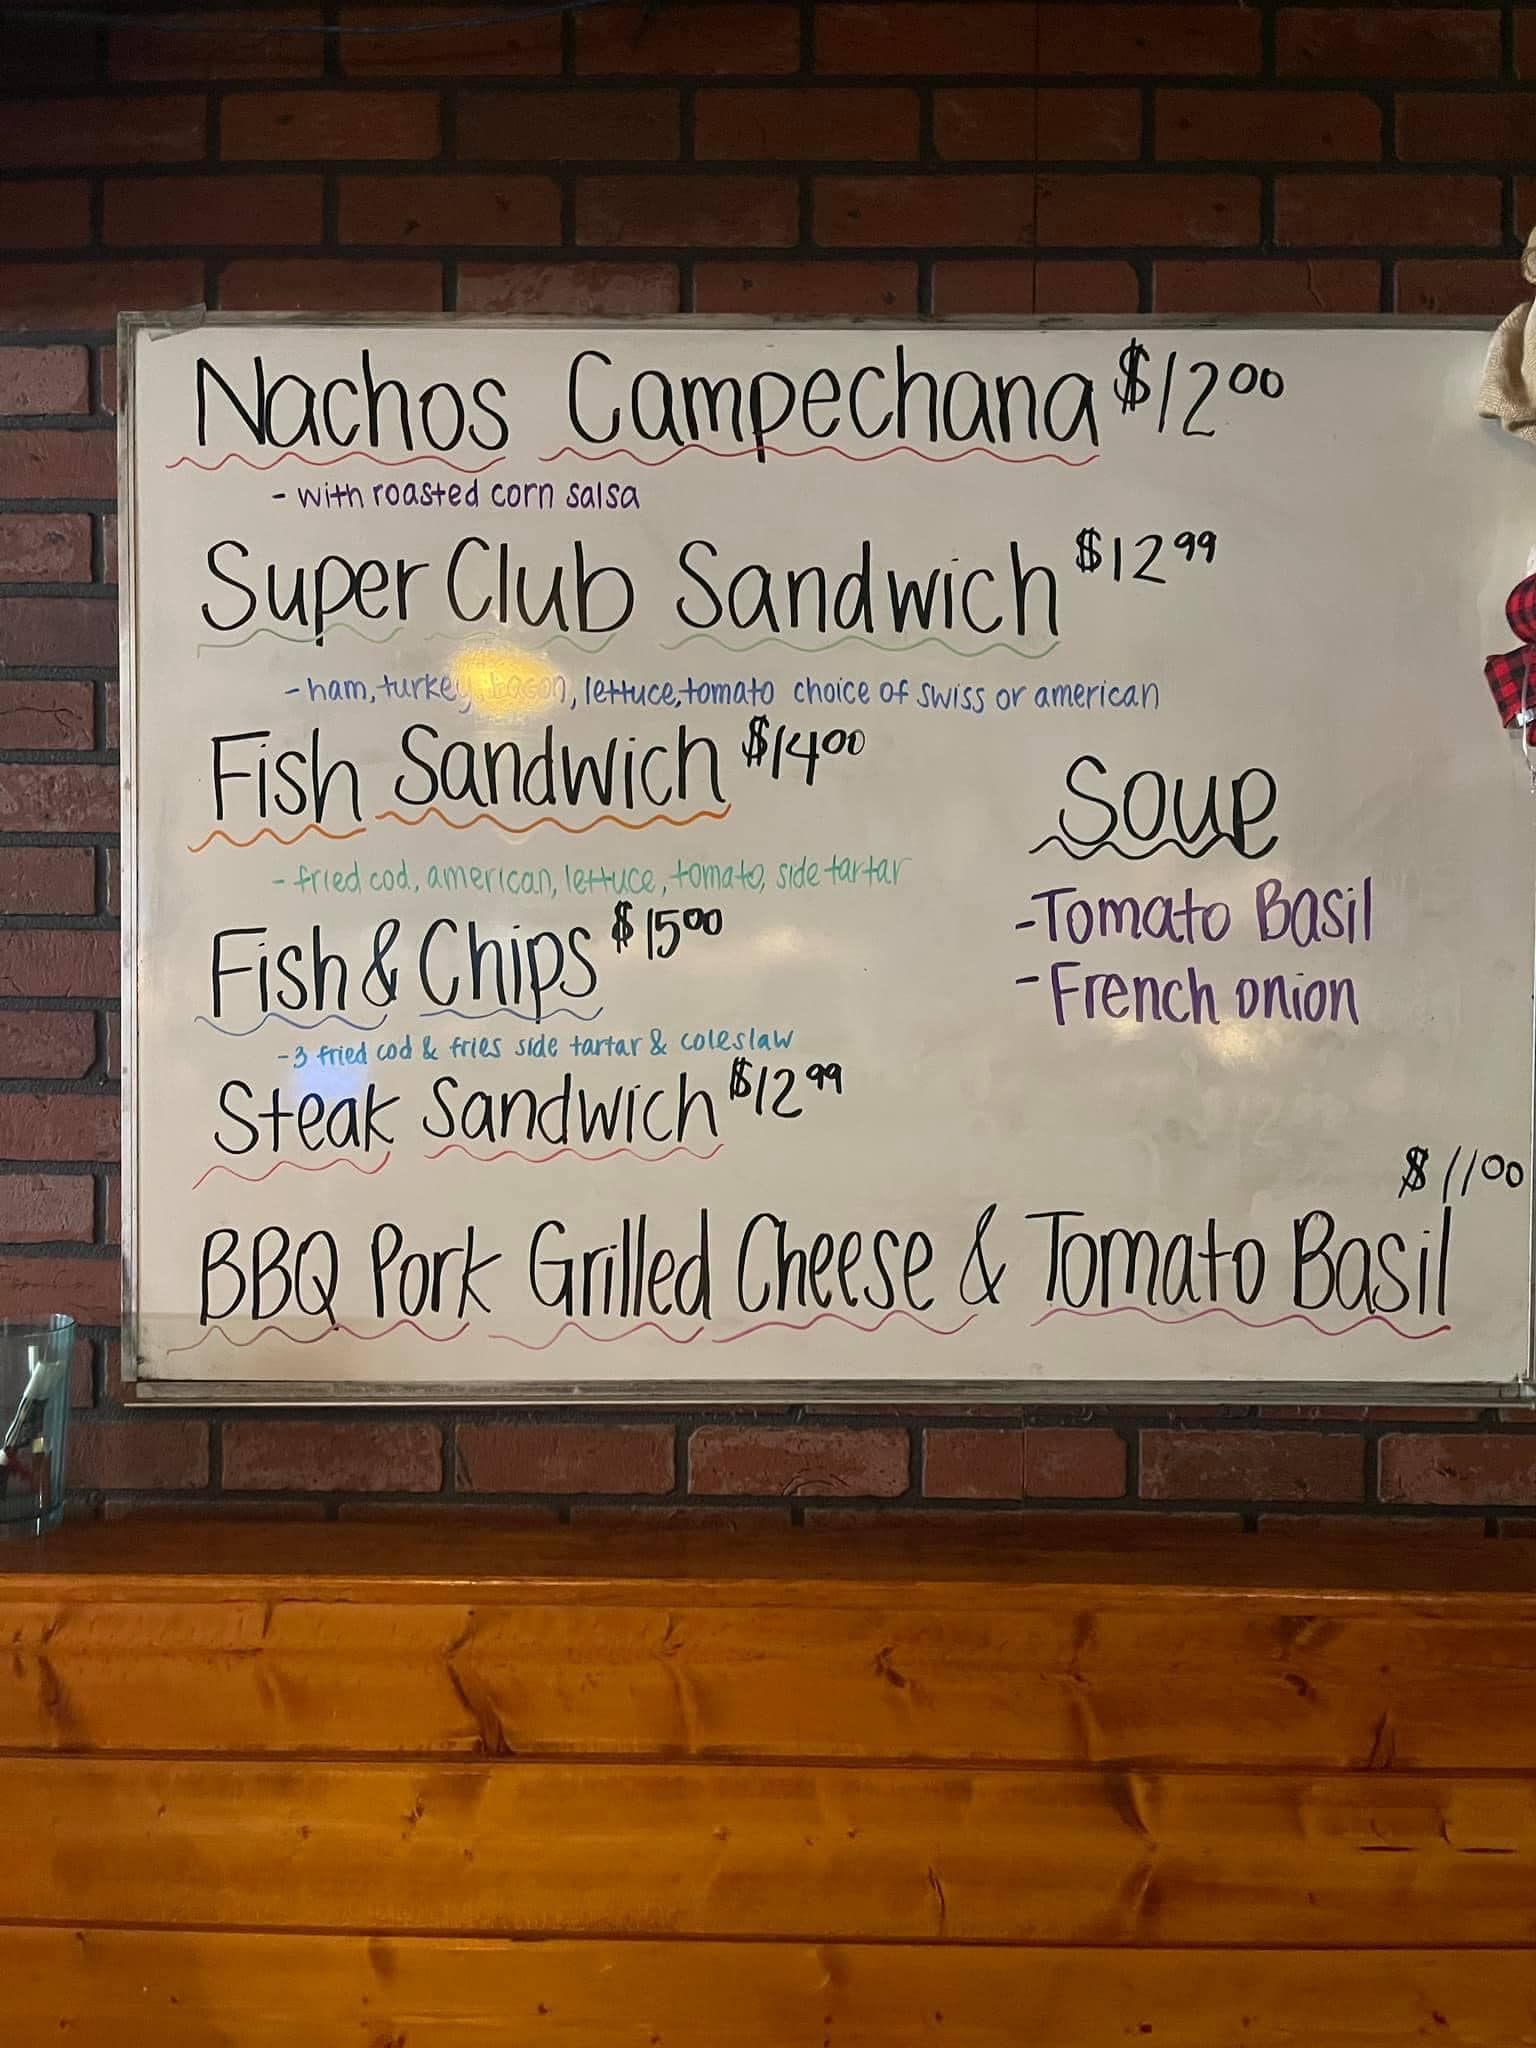 Nachos Campechana $12.00
- with roasted corn salsa
Super Club Sandwich $12.99
- ham, turkey, bacon, lettuce, tomato choice of swiss or american
Fish Sandwich $14.00
- fried cod, american, lettuce, tomato, side tartar
Fish & Chips $15.00
- 3 fried cod & fries side tartar & coleslaw
Steak Sandwich $12.99
Soup
- Tomato Basil
- French onion
BBQ Pork Grilled Cheese & Tomato Basil $11.00